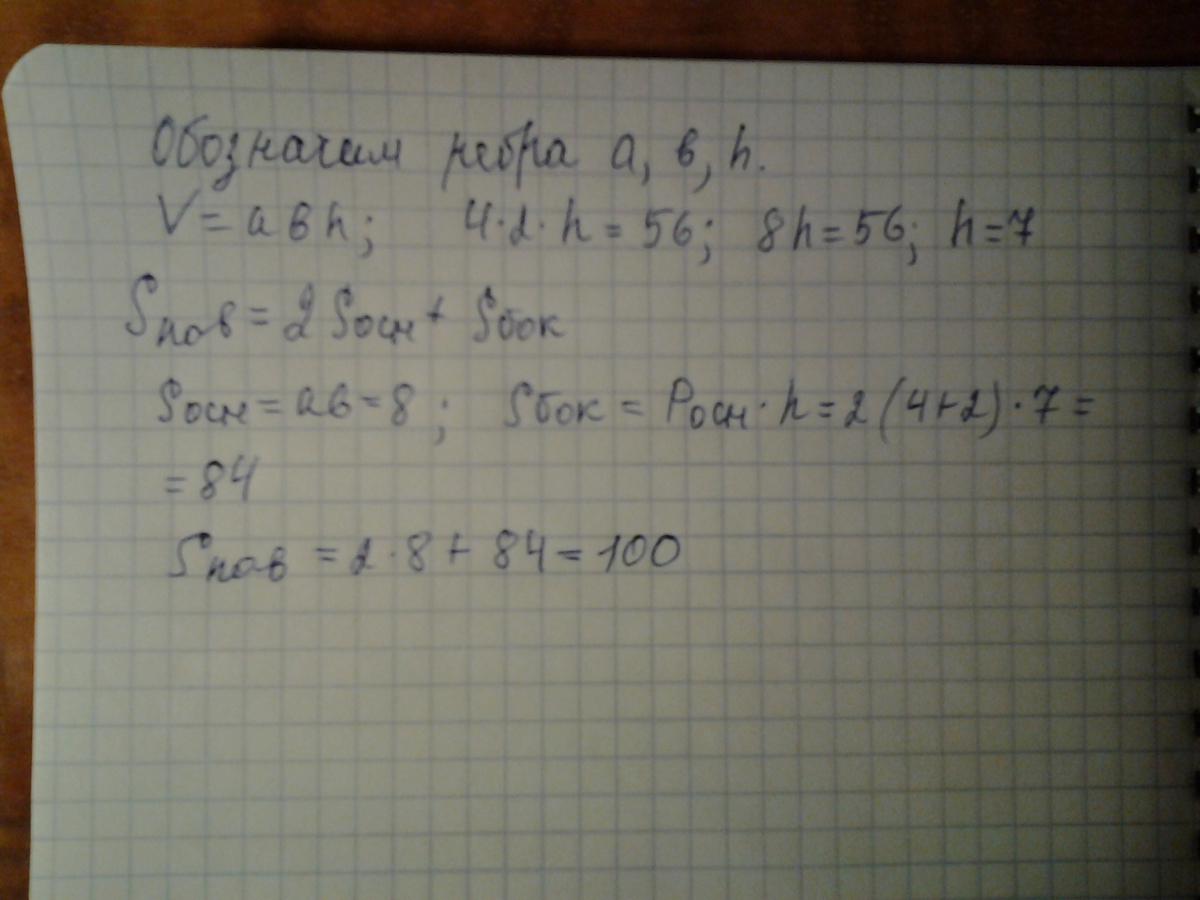 Обозначим ребра a, в, h.
V = a в h; 4·2·h = 56; 8h = 56; h = 7
Sпов = 2 Sосн + Sбок
Sосн = ав = 8; Sбок = Pосн · h = 2(4+2)·7 =
= 84
Sпов = 2·8 + 84 = 100